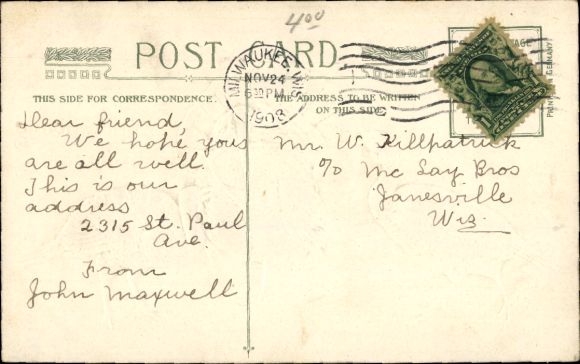 400
POST CARD
MILWAUKEE, WIS.
NOV 24
6 30 PM
1908
THIS SIDE FOR CORRESPONDENCE.
THE ADDRESS TO BE WRITTEN
ON THIS SIDE
GERMANY
Dear friend,
We hope yous
are all well.
This is our
address
2315 St. Paul
Ave.
From
John Maxwell
Mr. W. Killpatrick
c/o Mc Lay Bros
Janesville
Wis.